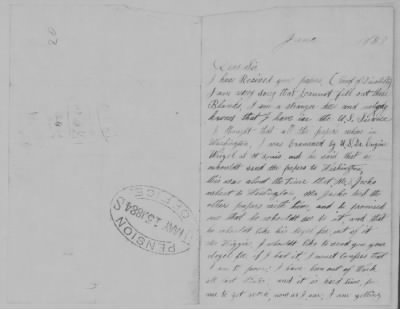 Dear Sir
I have Received your papers, (Proof of Disability)
I am very sorry that I cannot fill out these
Blanks, I am a stranger here and nobody
knows that I have in the U.S. Service
I thought that all the papers where in
Washington, I was Examined by U.S. Dr.
at St Louis and he said that he
whouldt send the papers to Washington,
this was about the time that Mr. Jecko
whent to Washington. Mr. Jecko had the
other papers with him, and he promised
me that he whouldt see to it, and that
he whouldt like his legal fee out of it
I whouldt like to send you your
legal fee if I had it, I must confess that
I am to poore, I have been out of Work
and it is hard times for
me to get work, now as I am getting
PENSION OFFICE
MAY 15 1884